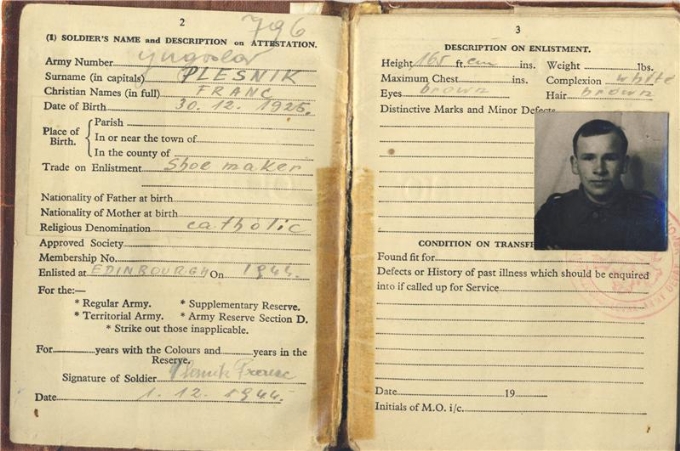 2
796
(I) SOLDIER'S NAME and DESCRIPTION on ATTESTATION.
yugoslav
Army Number
Surname (in capitals) PLESNIK
Christian Names (in full) FRANC
Date of Birth 30. 12. 1925.
Place of Birth.
Parish
In or near the town of
In the county of
Trade on Enlistment Shoe maker
Nationality of Father at birth
Nationality of Mother at birth
Religious Denomination catholic
Approved Society
Membership No.
Enlisted at EDINBOURGH On 1944.
For the:—
* Regular Army. * Supplementary Reserve.
* Territorial Army. * Army Reserve Section D.
* Strike out those inapplicable.
For years with the Colours and years in the
Reserve.
Signature of Soldier Plesnik Franc
Date 1. 12. 1944.
3
DESCRIPTION ON ENLISTMENT.
Height 165 ft. cm ins. Weight lbs.
Maximum Chest ins. Complexion white
Eyes brown Hair brown
Distinctive Marks and Minor Defects
CONDITION ON TRANSF
Found fit for
Defects or History of past illness which should be enquired
into if called up for Service
Date 19
Initials of M.O. i/c.